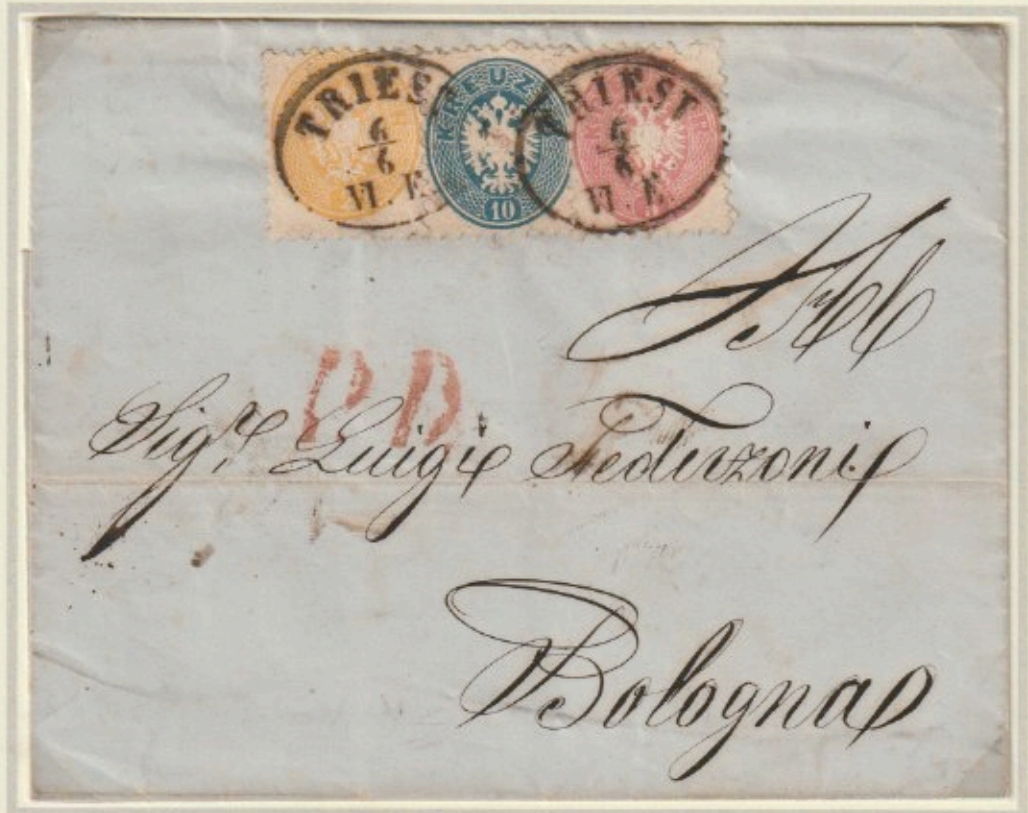 TRIEST
6/6
VI. E.
KREUZ
10
TRIEST
6/6
VI. E.
P.D.
Sigr. Luigi Federzoni
Bologna